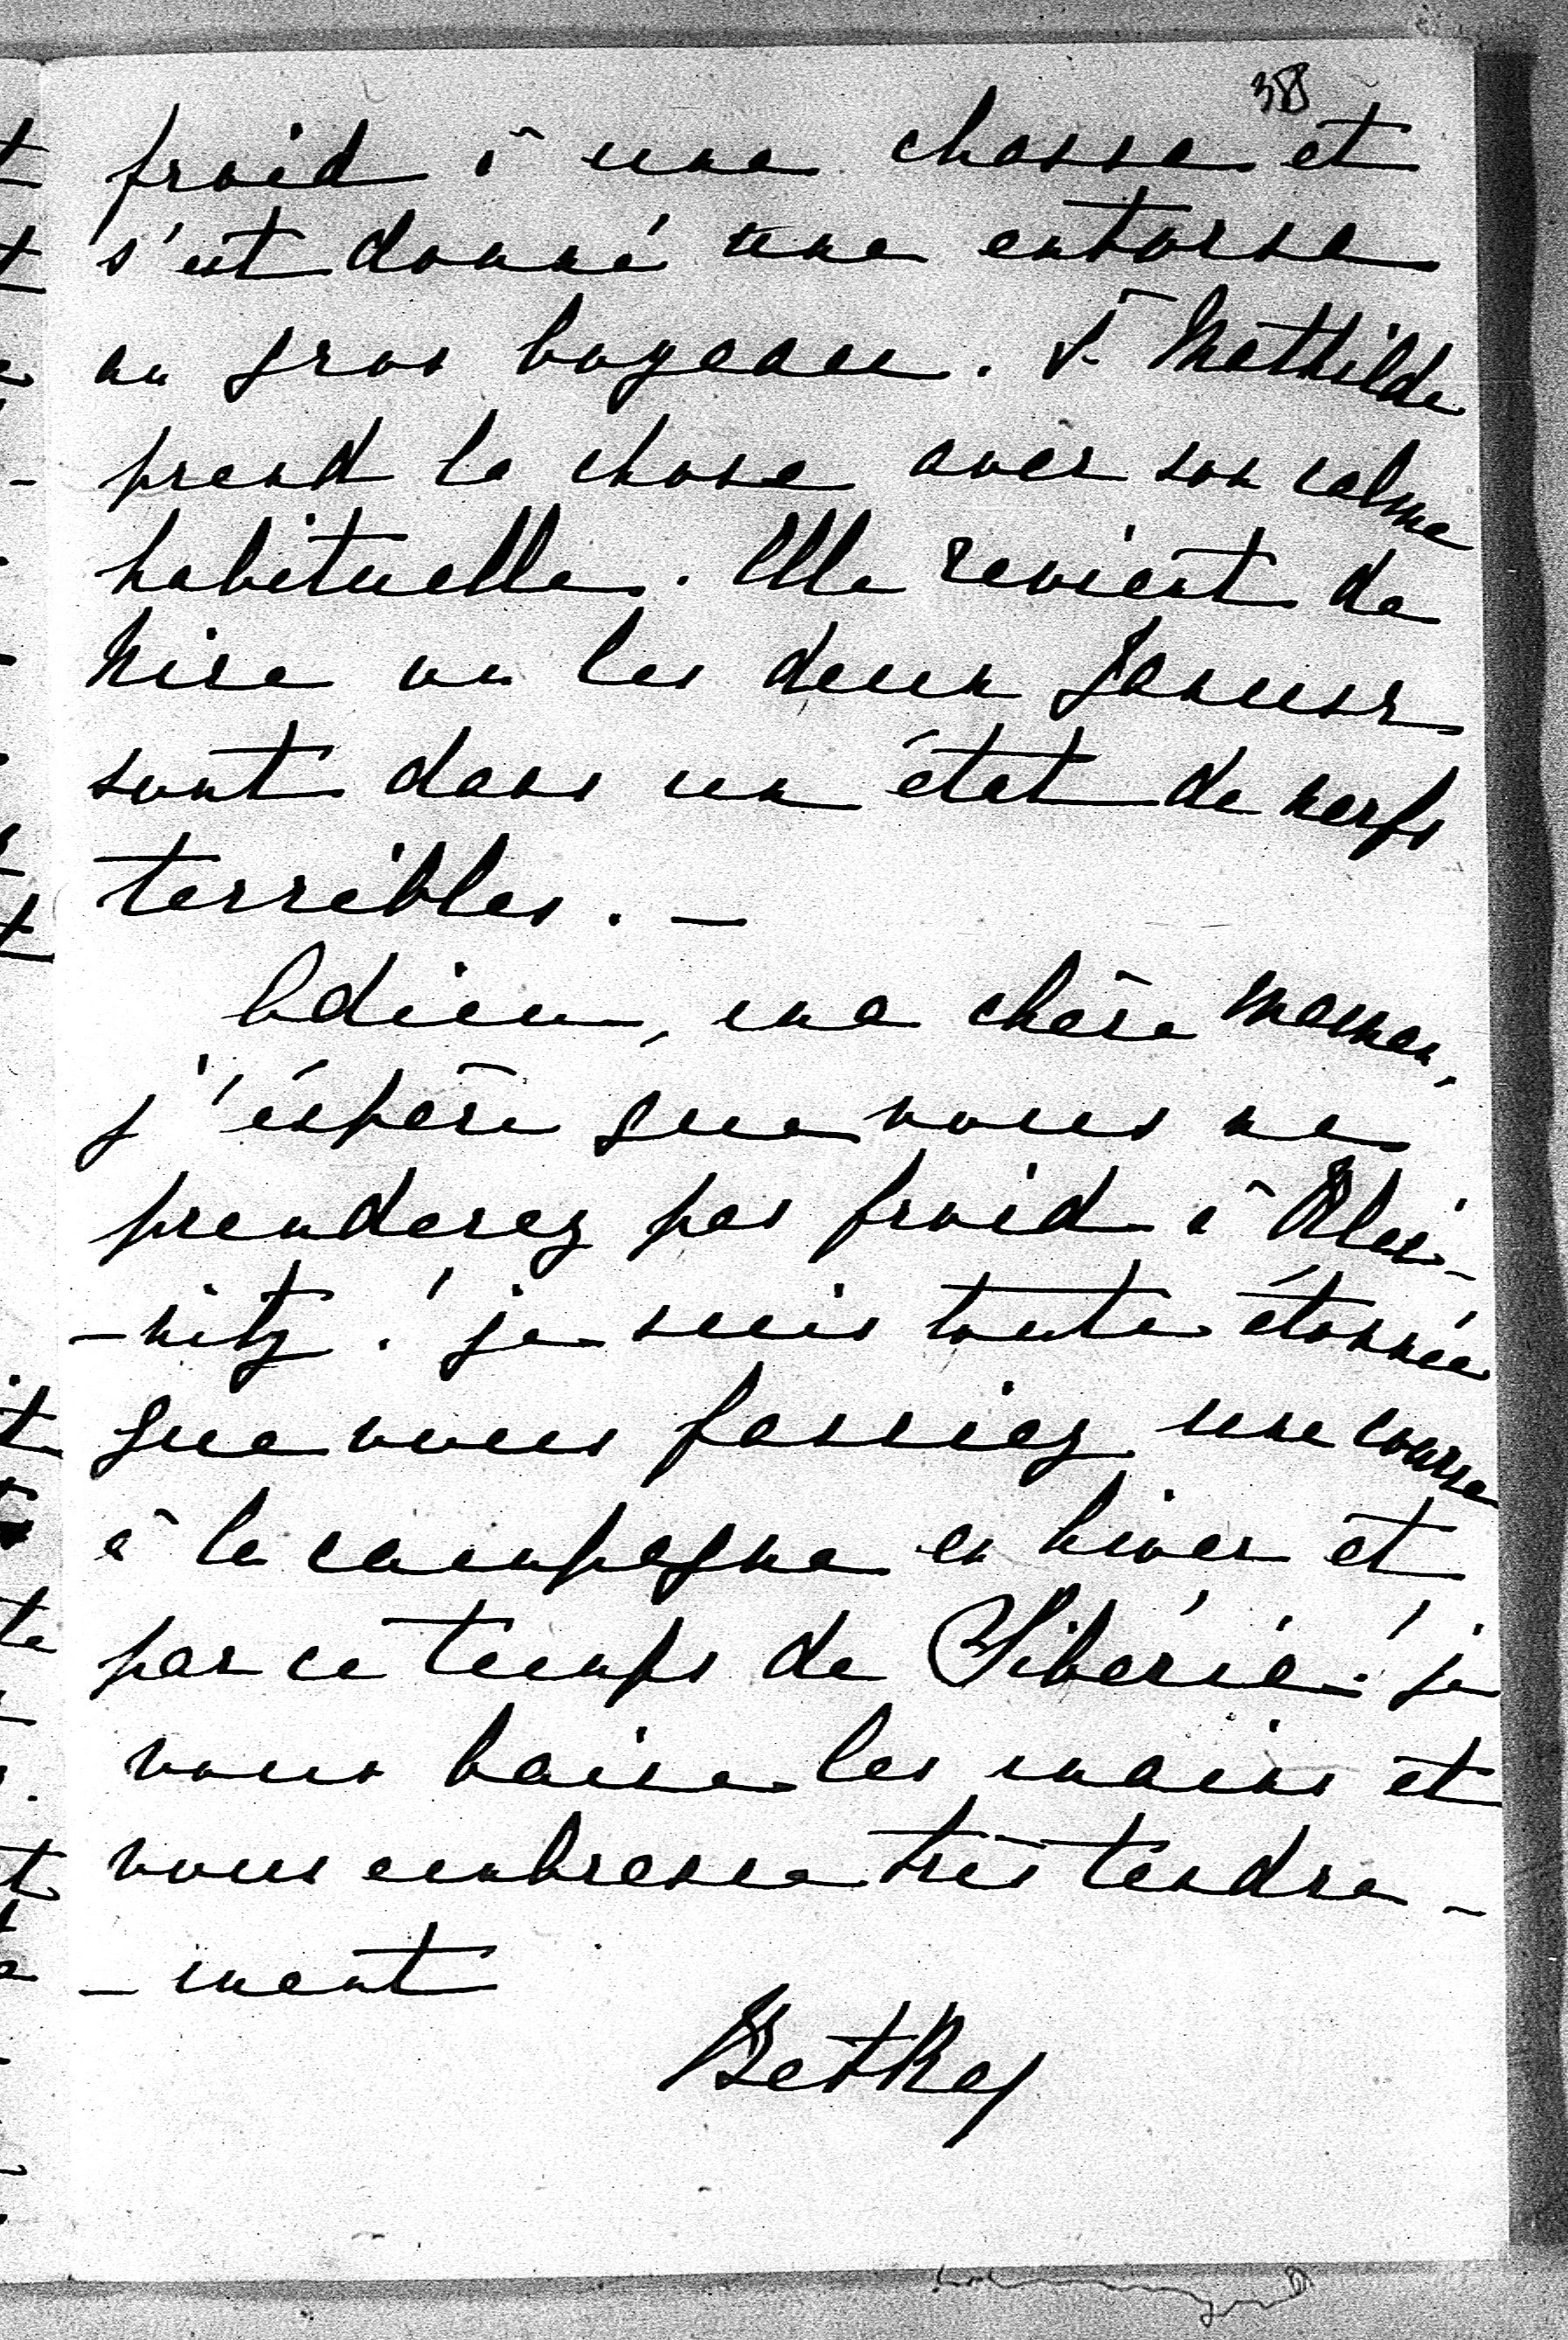 388
froid à une chasse et
s'est donné une entorse
au gros boyeau. T. Mathilde
prend la chose avec son calme
habituelle. Elle revient de
Nice ou les deux Janusz
sont dans un état de nerfs
terribles. –
Adieu, ma chère maman,
j'éspère que vous ne
prenderez pas froid à Klei-
-nitz. je suis toute étonnée
que vous fassiez une course
à la campagne en hiver et
par ce temps de Sibérie. je
vous baise les mains et
vous embrasse très tendre-
-ment
Betka